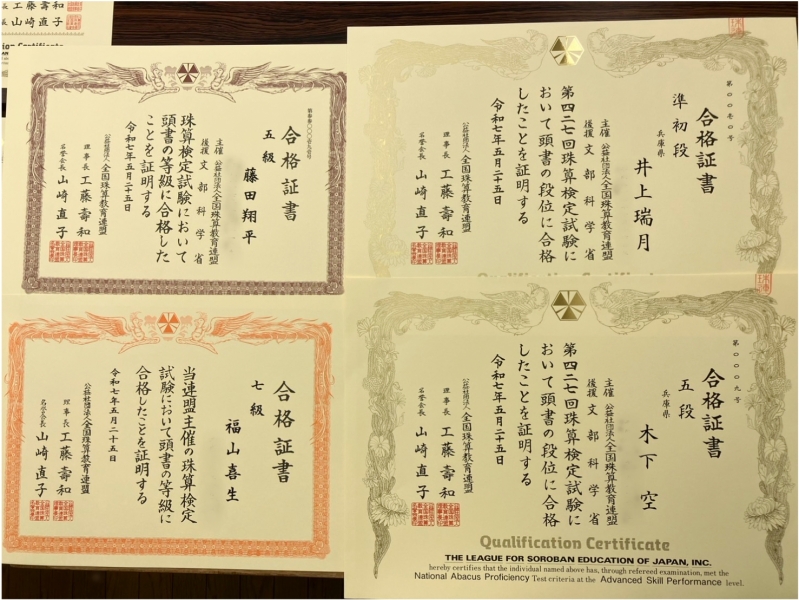 工藤壽和
山崎直子
合格証書
五級
藤田翔平
主催 公益社団法人全国珠算教育連盟
後援 文部科学省
珠算検定試験において
頭書の等級に合格した
ことを証明する
令和七年五月二十五日
公益社団法人全国珠算教育連盟
理事長 工藤壽和
名誉会長 山崎直子
合格証書
準初段
兵庫県
井上瑞月
主催 公益社団法人全国珠算教育連盟
後援 文部科学省
第四二七回珠算検定試験に
おいて頭書の段位に合格
したことを証明する
令和七年五月二十五日
公益社団法人全国珠算教育連盟
理事長 工藤壽和
名誉会長 山崎直子
Qualification Certificate
合格証書
七級
福山喜生
当連盟主催の珠算検定
試験において頭書の等級に
合格したことを証明する
令和七年五月二十五日
公益社団法人全国珠算教育連盟
理事長 工藤壽和
名誉会長 山崎直子
第〇〇〇九号
合格証書
五段
兵庫県
木下空
主催 公益社団法人全国珠算教育連盟
後援 文部科学省
第四二七回珠算検定試験に
おいて頭書の段位に合格
したことを証明する
令和七年五月二十五日
公益社団法人全国珠算教育連盟
理事長 工藤壽和
名誉会長 山崎直子
Qualification Certificate
THE LEAGUE FOR SOROBAN EDUCATION OF JAPAN, INC.
hereby certifies that the individual named above has, through refereed examination, met the
National Abacus Proficiency Test criteria at the Advanced Skill Performance level.